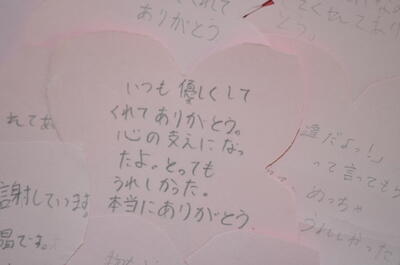 ありがとう
いつも優しくして
くれてありがとう。
心の支えになっ
たよ。とっても
うれしかった。
本当にありがとう。
れてあ
謝しています。
です。
だよっ!」
って言っても
めっちゃ
うれしかった